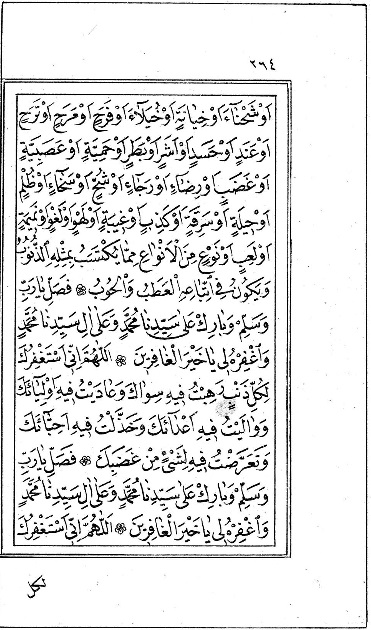 ٢٦٤
اَوْشَحْنَاءَ اَوْخِيَانَةٍ اَوْخُيَلَاءَ اَوْفَرَحٍ اَوْمَرَحٍ اَوْتَرَحٍ
اَوْعَنَدٍ اَوْحَسَدٍ اَوْاَشَرٍ اَوْبَطَرٍ اَوْحَمِيَّةٍ اَوْعَصَبِيَّةٍ
اَوْغَضَبٍ اَوْرِضَاءٍ اَوْرَجَاءٍ اَوْشُحٍّ اَوْسَخَاءٍ اَوْظُلْمٍ
اَوْحِيلَةٍ اَوْسَرِقَةٍ اَوْكَذِبٍ اَوْغِيبَةٍ اَوْلَهْوٍ اَوْلَغْوٍ اَوْنَمِيمَةٍ
اَوْلَعِبٍ اَوْنَوْعٍ مِنَ الْاَنْوَاعِ مِمَّا يُكْتَسَبُ بِمِثْلِهِ الذُّنُوبُ
وَيَكُونُ فِى اتِّبَاعِهِ الْعَطَبُ وَالْحُوبُ ۞ فَصَلِّ يَارَبِّ
وَسَلِّمْ وَبَارِكْ عَلٰى سَيِّدِنَا مُحَمَّدٍ وَعَلٰى اٰلِ سَيِّدِنَا مُحَمَّدٍ
وَاغْفِرْهُ لِى يَاخَيْرَ الْغَافِرِينَ ۞ اَللّٰهُمَّ اِنِّى اَسْتَغْفِرُكَ
لِكُلِّ ذَنْبٍ رَهِبْتُ فِيهِ سِوَاكَ وَعَادَيْتُ فِيهِ اَوْلِيَائَكَ
وَوَالَيْتُ فِيهِ اَعْدَائَكَ وَخَذَلْتُ فِيهِ اَحِبَّائَكَ
وَتَعَرَّضْتُ فِيهِ لِشَىْءٍ مِنْ غَضَبِكَ ۞ فَصَلِّ يَارَبِّ
وَسَلِّمْ وَبَارِكْ عَلٰى سَيِّدِنَا مُحَمَّدٍ وَعَلٰى اٰلِ سَيِّدِنَا مُحَمَّدٍ
وَاغْفِرْهُ لِى يَاخَيْرَ الْغَافِرِينَ ۞ اَللّٰهُمَّ اِنِّى اَسْتَغْفِرُكَ
لكل